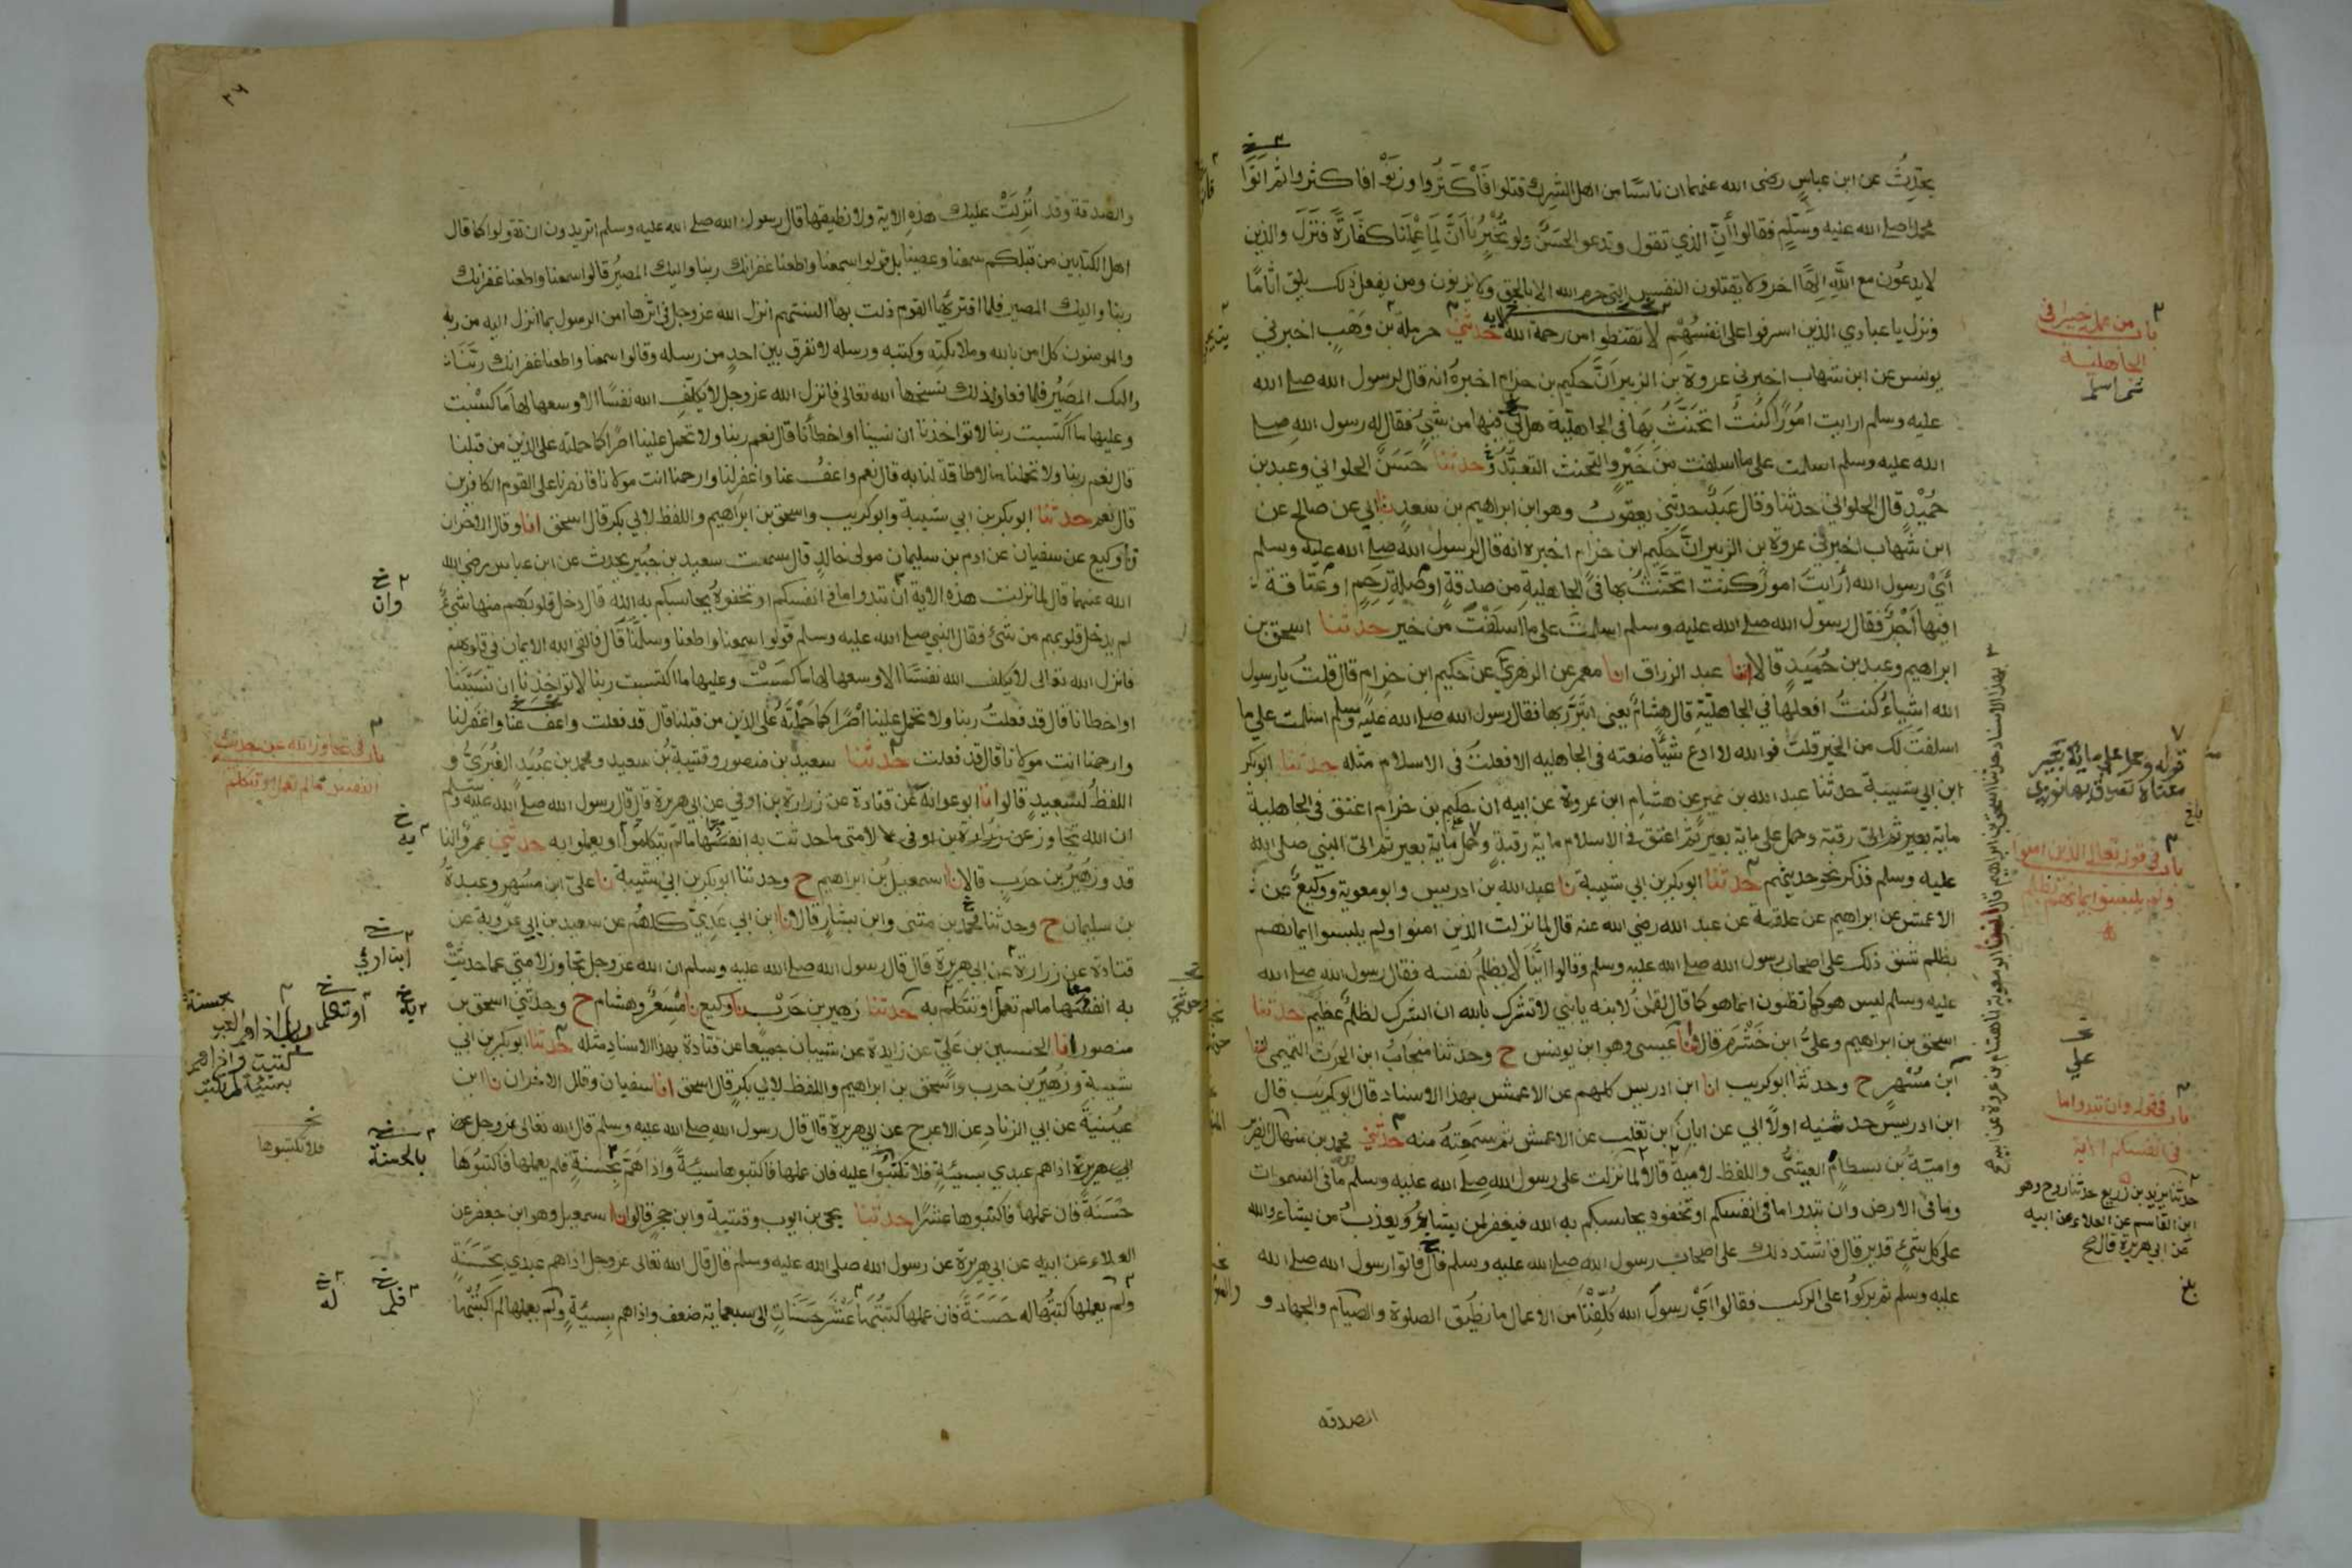 يحدث عن ابن عباس رضى الله عنهما ان ناسا من اهل الشرك قتلوا فاكثروا وزنوا فاكثروا ثم اتوا
محمدا صلے الله عليه وسلم فقالوا ان الذي تقول وتدعو لحسن ولو تخبرنا ان لما عملنا كفارة فنزل والذين
لا يدعون مع الله الها اخر ولا يقتلون النفس التي حرم الله الا بالحق ولا يزنون ومن يفعل ذلك يلق اثاما
ونزل يا عبادي الذين اسرفوا على انفسهم لا تقنطوا من رحمة الله حدثني حرملة بن وهب اخبرني
يونس عن ابن شهاب اخبرني عروة بن الزبير ان حكيم بن حزام اخبره انه قال لرسول الله صلے الله
عليه وسلم ارايت امورا كنت اتحنث بها في الجاهلية هل لي فيها من شئ فقال له رسول الله صلے
الله عليه وسلم اسلمت على ما اسلفت من خير والتحنث التعبد وحدثنا حسن الحلواني وعبد بن
حميد قال الحلواني حدثنا وقال عبد حدثني يعقوب وهو ابن ابراهيم بن سعد نا ابي عن صالح عن
ابن شهاب اخبرني عروة بن الزبير ان حكيم ابن حزام اخبره انه قال لرسول الله صلے الله عليه وسلم
أي رسول الله أرايت امورا كنت اتحنث بها في الجاهلية من صدقة او صلة رحم او عتاقة
افيها اجر فقال رسول الله صلے الله عليه وسلم اسلمت على ما اسلفت من خير حدثنا اسحق بن
ابراهيم وعبد بن حميد قالا انا عبد الرزاق انا معمر عن الزهري عن حكيم ابن حزام قال قلت يا رسول
الله اشياء كنت افعلها في الجاهلية قال هشام يعني اتبرر بها فقال رسول الله صلے الله عليه وسلم اسلمت على ما
اسلفت لك من الخير قلت فوالله لا ادع شيئا صنعته في الجاهليه الا فعلت في الاسلام مثله حدثنا ابو بكر
ابن ابي شيبة حدثنا عبد الله بن نمير عن هشام ابن عروة عن ابيه ان حكيم بن حزام اعتق في الجاهلية
ماية رقبة وحمل على ماية بعير ثم اعتق في الاسلام ماية رقبة وحمل ماية بعير ثم اتى النبي صلى الله
عليه وسلم فذكر نحو حديثهم حدثنا ابو بكر بن ابي شيبة نا عبد الله بن ادريس وابو معوية ووكيع عن
الاعمش عن ابراهيم عن علقمة عن عبد الله رضي الله عنه قال لما نزلت الذين امنوا ولم يلبسوا ايمانهم
بظلم شق ذلك على اصحاب رسول الله صلے الله عليه وسلم وقالوا اينا لا يظلم نفسه فقال رسول الله صلے الله
عليه وسلم ليس هو كما تظنون انما هو كما قال لقمن لابنه يا بني لا تشرك بالله ان الشرك لظلم عظيم حدثنا
اسحق بن ابراهيم وعلي ابن خشرم قالا انا عيسى وهو ابن يونس ح وحدثنا منجاب ابن الحرث التميمي انا
ابن مسهر ح وحدثنا ابو كريب انا ابن ادريس كلهم عن الاعمش بهذا الاسناد قال ابو كريب قال
ابن ادريس حدثنيه اولا ابي عن ابان ابن تغلب عن الاعمش ثم سمعته منه حدثني محمد بن منهال الضرير
وامية بن بسطام العيشي واللفظ لامية قالا لما نزلت على رسول الله صلے الله عليه وسلم ما في السموات
وما في الارض وان تبدوا ما في انفسكم او تخفوه يحاسبكم به الله فيغفر لمن يشاء ويعذب من يشاء والله
على كل شئ قدير قال فاشتد ذلك على اصحاب رسول الله صلے الله عليه وسلم قال فاتوا رسول الله صلے الله
عليه وسلم ثم بركوا على الركب فقالوا اي رسول الله كلفنا من الاعمال ما نطيق الصلوة والصيام والجهاد و
الصدقه
باب من عمل خيرا في
الجاهلية
ثم اسلم
قوله وحمل على ماية بعير
معناه تصدق بها نووي
باب في قوله تعالى الذين امنوا
ولم يلبسوا ايمانهم بظلم
باب في قوله وان تبدوا ما
في انفسكم الاية
حدثنا يزيد بن زريع حدثنا روح وهو
ابن القاسم عن العلاء عن ابيه
عن ابي هريرة قال صح
والصدقة وقد انزلت عليك هذه الاية ولا نطيقها قال رسول الله صلے الله عليه وسلم اتريدون ان تقولوا كما قال
اهل الكتابين من قبلكم سمعنا وعصينا بل قولوا سمعنا واطعنا غفرانك ربنا واليك المصير قالوا سمعنا واطعنا غفرانك
ربنا واليك المصير فلما اقترءها القوم ذلت بها السنتهم انزل الله عز وجل في اثرها امن الرسول بما انزل اليه من ربه
والمومنون كل امن بالله وملايكته وكتبه ورسله لا نفرق بين احد من رسله وقالوا سمعنا واطعنا غفرانك ربنا
واليك المصير فلما فعلوا ذلك نسخها الله تعالى فانزل الله عز وجل لا يكلف الله نفسا الا وسعها لها ما كسبت
وعليها ما اكتسبت ربنا لا تواخذنا ان نسينا او اخطأنا قال نعم ربنا ولا تحمل علينا اصرا كما حملته على الذين من قبلنا
قال نعم ربنا ولا تحملنا ما لا طاقة لنا به قال نعم واعف عنا واغفر لنا وارحمنا انت مولانا فانصرنا على القوم الكافرين
قال نعم حدثنا ابو بكر بن ابي شيبة وابو كريب واسحق بن ابراهيم واللفظ لابي بكر قال اسحق انا وقال الاخران
نا وكيع عن سفيان عن ادم بن سليمان مولى خالد قال سمعت سعيد بن جبير يحدث عن ابن عباس رضي الله
عنهما قال لما نزلت هذه الاية ان تبدوا ما في انفسكم او تخفوه يحاسبكم به الله قال دخل قلوبهم منها شئ
لم يدخل قلوبهم من شئ فقال النبي صلے الله عليه وسلم قولوا سمعنا واطعنا وسلمنا قال فالقى الله الايمان في قلوبهم
فانزل الله تعالى لا يكلف الله نفسا الا وسعها لها ما كسبت وعليها ما اكتسبت ربنا لا تواخذنا ان نسينا
او اخطانا قال قد فعلت ربنا ولا تحمل علينا اصرا كما حملته على الذين من قبلنا قال قد فعلت واعف عنا واغفر لنا
وارحمنا انت مولانا قال قد فعلت حدثنا سعيد بن منصور وقتيبة بن سعيد ومحمد بن عبيد الغبري و
اللفظ لسعيد قالوا نا ابو عوانة عن قتادة عن زرارة بن اوفى عن ابي هريرة قال قال رسول الله صلے الله عليه وسلم
ان الله تجاوز لامتي ما حدثت به انفسها ما لم يتكلموا او يعملوا به حدثني عمرو الناقد
وزهير بن حرب قالا نا اسمعيل بن ابراهيم ح وحدثنا ابو بكر بن ابي شيبة نا علي ابن مسهر وعبدة
بن سليمان ح وحدثنا محمد بن مثنى وابن بشار قالا نا ابن ابي عدي كلهم عن سعيد بن ابي عروبة عن
قتادة عن زرارة عن ابي هريرة قال قال رسول الله صلے الله عليه وسلم ان الله عز وجل تجاوز لامتي عما حدثت
به انفسها ما لم تعمل او تتكلم به حدثنا زهير بن حرب نا وكيع نا مسعر وهشام ح وحدثني اسحق بن
منصور انا الحسين بن علي عن زايدة عن شيبان جميعا عن قتادة بهذا الاسناد مثله حدثنا ابو بكر بن ابي
شيبة وزهير بن حرب واسحق بن ابراهيم واللفظ لابي بكر قال اسحق انا سفيان وقال الاخران نا ابن
عيينة عن ابي الزناد عن الاعرج عن ابي هريرة قال قال رسول الله صلے الله عليه وسلم قال الله تعالى عز وجل
اذا هم عبدي بسيئة فلا تكتبوا عليه فان عملها فاكتبوها سيئة واذا هم بحسنة فلم يعملها فاكتبوها
حسنة فان عملها فاكتبوها عشرا حدثنا يحيى بن ايوب وقتيبة وابن حجر قالوا نا اسمعيل وهو ابن جعفر عن
العلاء عن ابيه عن ابي هريرة عن رسول الله صلى الله عليه وسلم قال قال الله تعالى عز وجل اذا هم عبدي بحسنة
ولم يعملها كتبتها له حسنة فان عملها كتبتها عشر حسنات الى سبعماية ضعف واذا هم بسيئة ولم يعملها لم اكتبها
وان
باب في تجاوز الله عن حديث
النفس ما لم تعمل او تتكلم
باب اذا هم العبد
بحسنة
كتبت واذا هم
بسيئة لم تكتب
فلا تكتبوها
بالحسنة
فلم
له